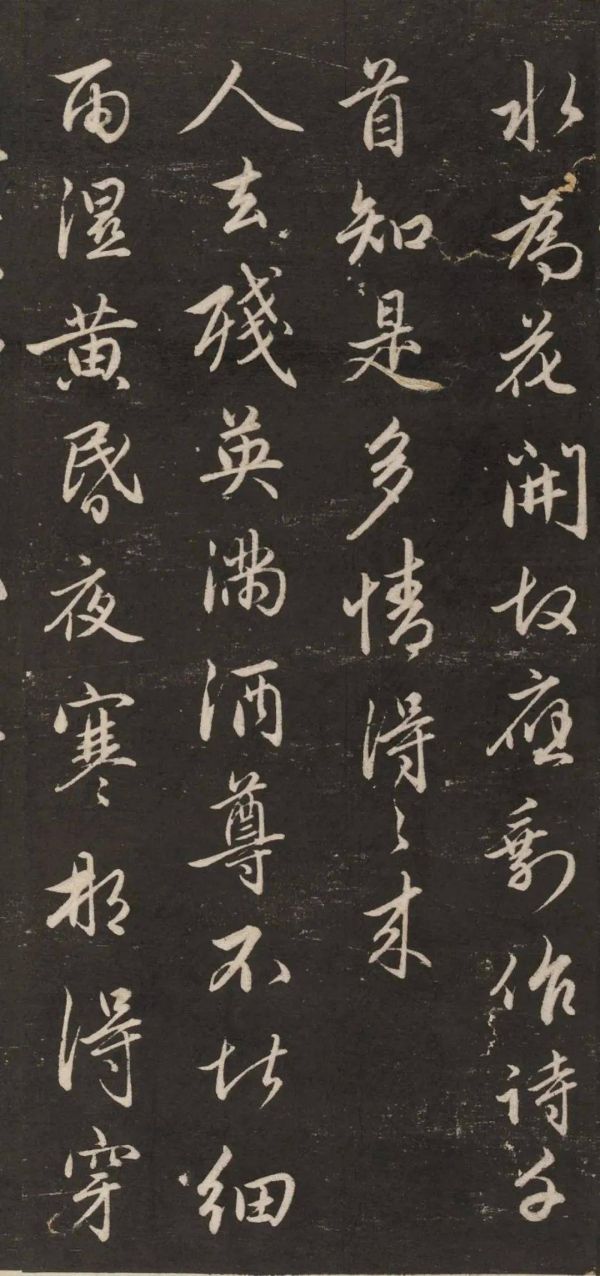 水為花開故應剩作詩千
首知是多情得々来
人去殘英滿酒尊不堪細
雨濕黄昏夜寒那得穿